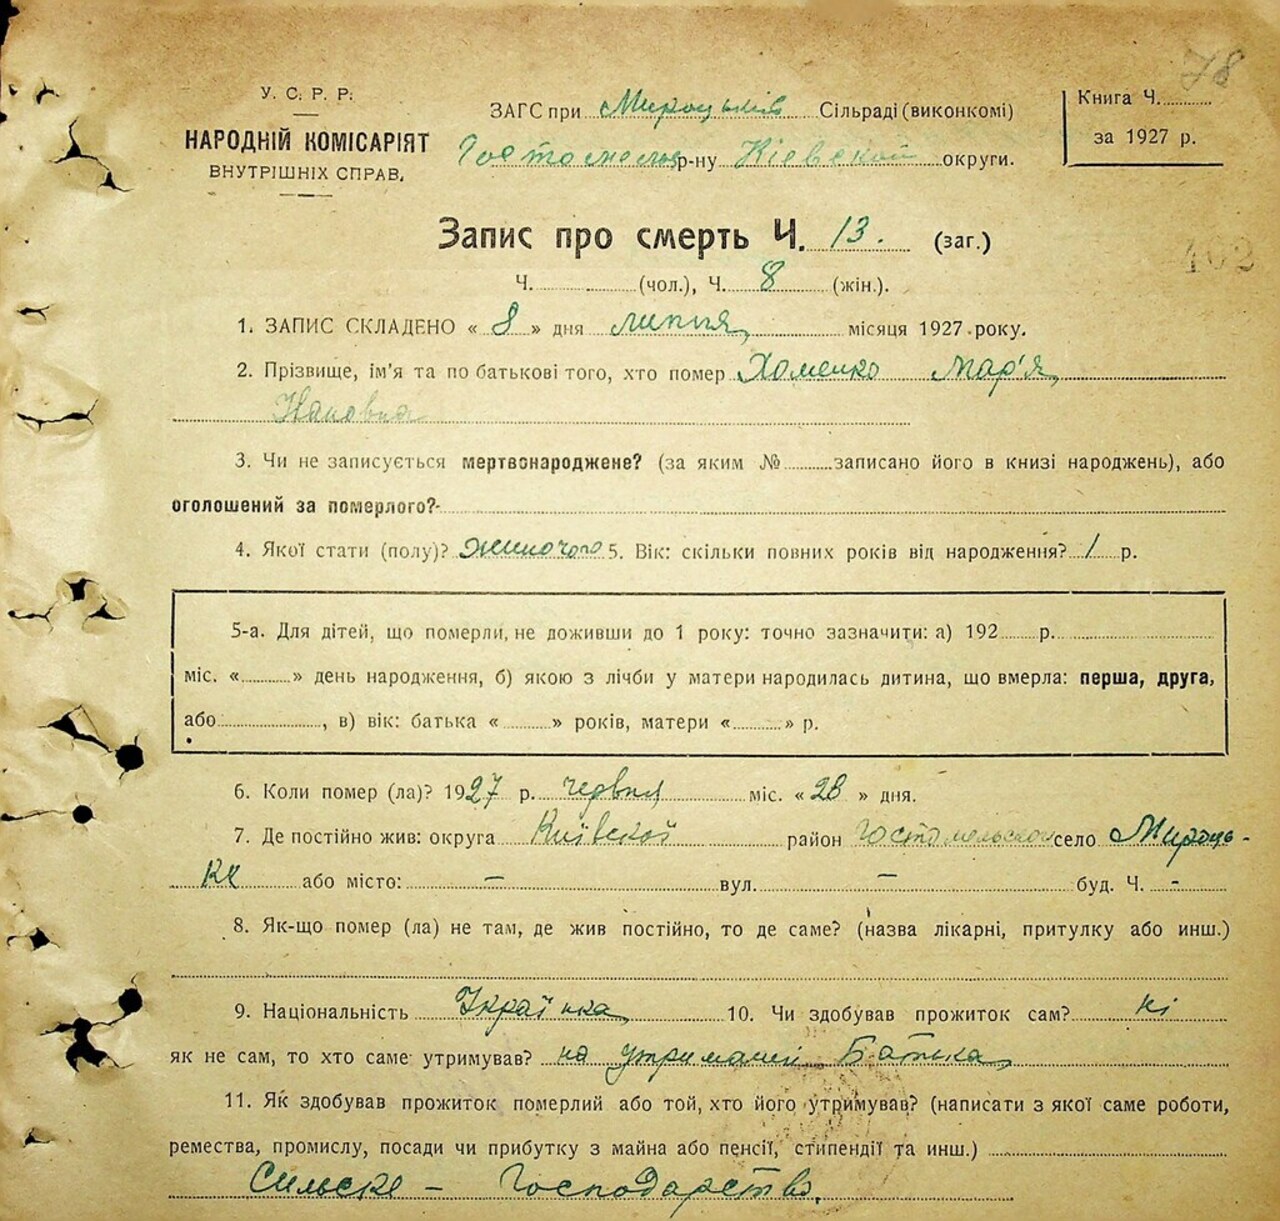 78
У. С. Р. Р.
НАРОДНІЙ КОМІСАРІЯТ
ВНУТРІШНІХ СПРАВ.
ЗАГС при Мироцькій Сільраді (виконкомі)
р-ну Кіевской округи.
Книга Ч.
за 1927 р.
402
Запис про смерть Ч. 13. (заг.)
Ч. (чол.), Ч. 8 (жін.).
1. ЗАПИС СКЛАДЕНО « 8 » дня липня місяця 1927 року.
2. Прізвище, ім'я та по батькові того, хто помер Хоменко Мар'я
3. Чи не записується мертвонароджене? (за яким № записано його в книзі народжень), або
оголошений за померлого?
4. Якої стати (полу)? жиночого 5. Вік: скільки повних років від народження? 1 р.
5-а. Для дітей, що померли, не доживши до 1 року: точно зазначити: а) 192 р.
міс. « » день народження, б) якою з лічби у матери народилась дитина, що вмерла: перша, друга,
або , в) вік: батька « » років, матери « » р.
6. Коли помер (ла)? 1927 р. червня міс. « 28 » дня.
7. Де постійно жив: округа Київской район Гостомельского село Мироць-
ке або місто: — вул. — буд. Ч. -
8. Як-що помер (ла) не там, де жив постійно, то де саме? (назва лікарні, притулку або инш.)
9. Національність Українка 10. Чи здобував прожиток сам? ні
як не сам, то хто саме утримував? на утриманні Батька
11. Як здобував прожиток померлий або той, хто його утримував? (написати з якої саме роботи,
ремества, промислу, посади чи прибутку з майна або пенсії, стипендії та инш.)
Сильске - Господарство.